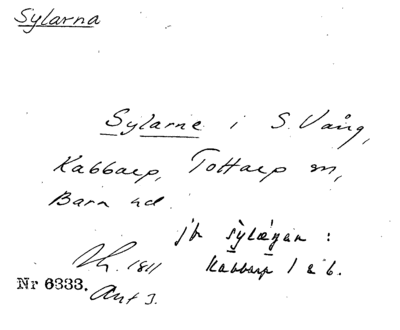 Sylarna
Sylarne i S. Vång,
Kabbarp, Tottarp sn,
Bara hd.
jfr sylæ̀gen :
Kabbarp 1 & 6.
1811
Nr 6333. Ant 3.